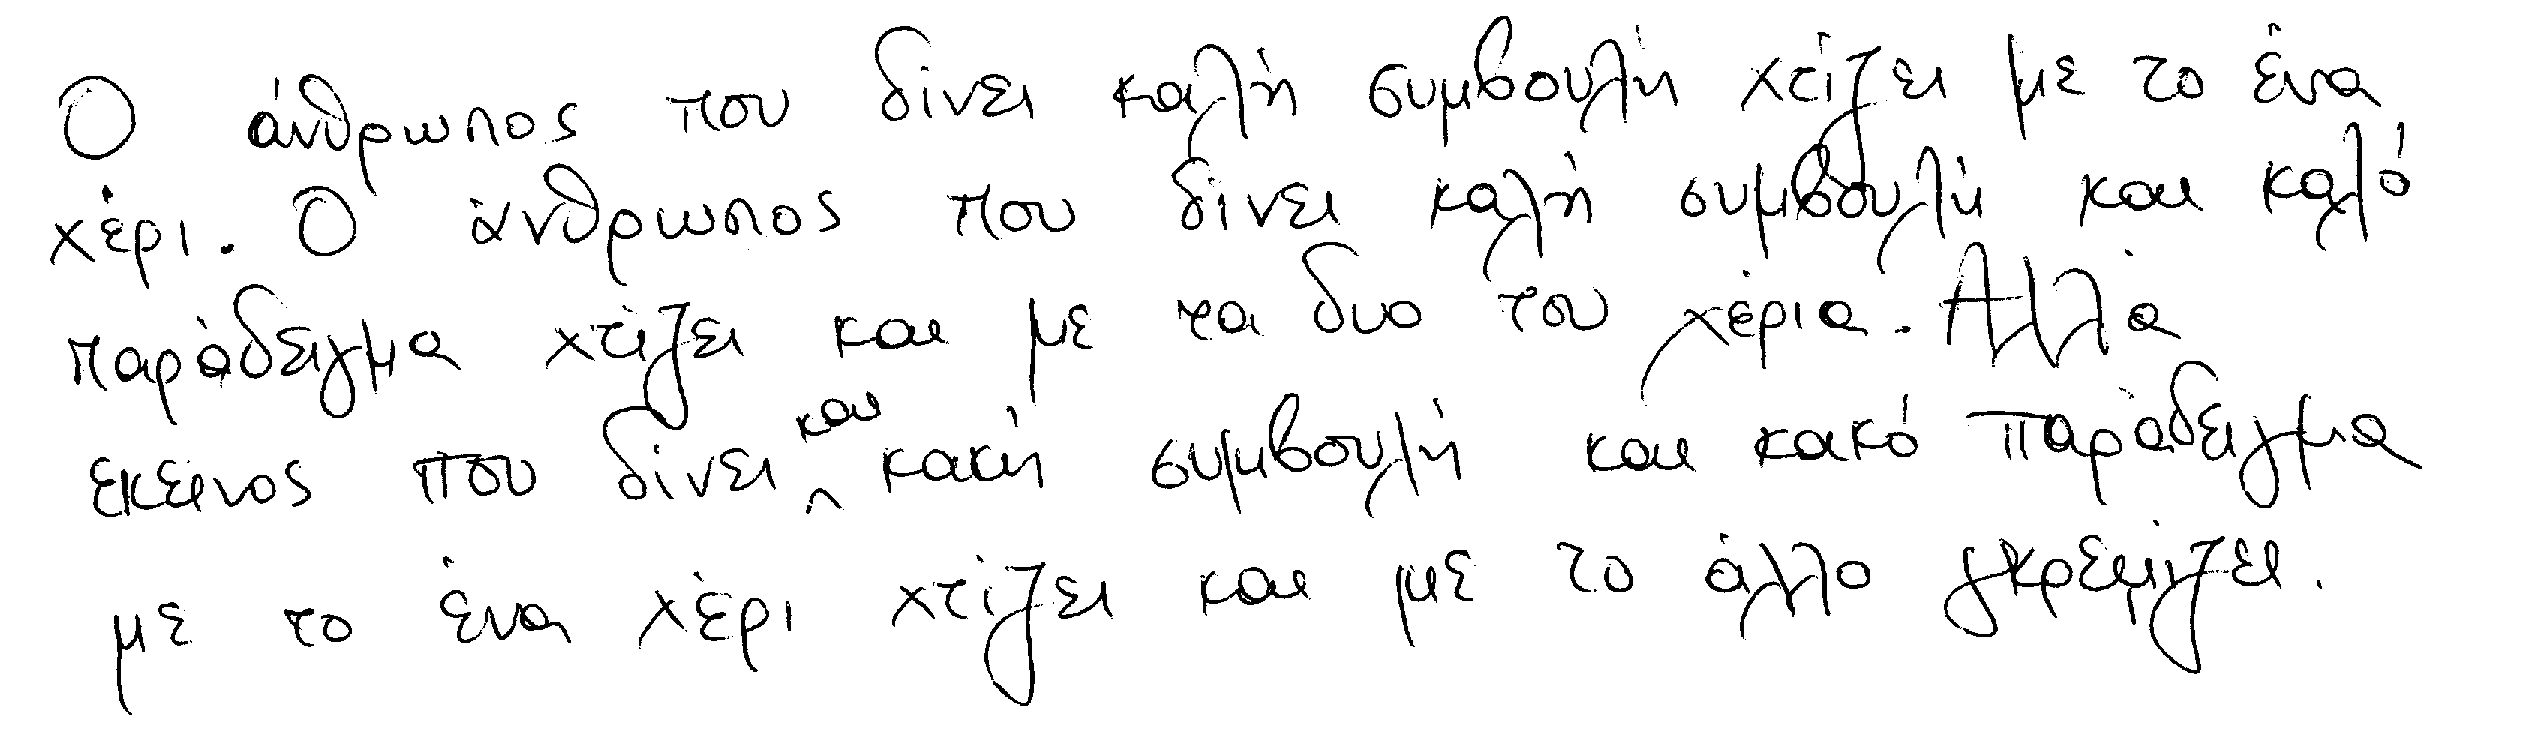 Ο άνθρωπος που δίνει καλή συμβουλή χτίζει με το ένα
χέρι. Ο άνθρωπος που δίνει καλή συμβουλή και καλό
παράδειγμα χτίζει και με τα δυο του χέρια. Αλλά
εκείνος που δίνει και κακή συμβουλή και κακό παράδειγμα
με το ένα χέρι χτίζει και με το άλλο γκρεμίζει.